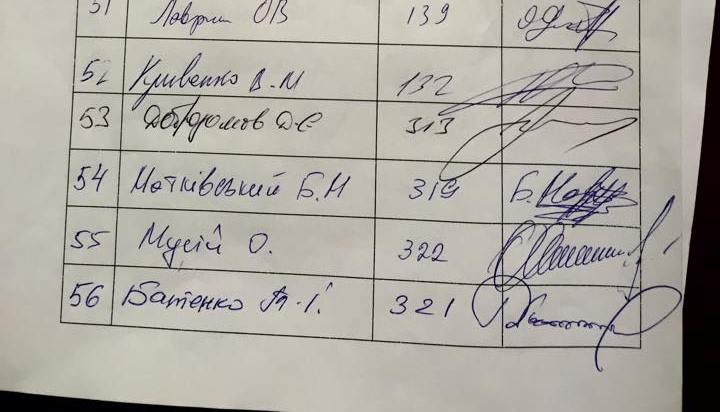 51 Лаврик О В 139
52 Кривенко В.М 132
53 Добродомов Д Є 313
54 Матківський Б.М 319 Б.
55 Мусій О. 322
56 Батенко Т.І. 321